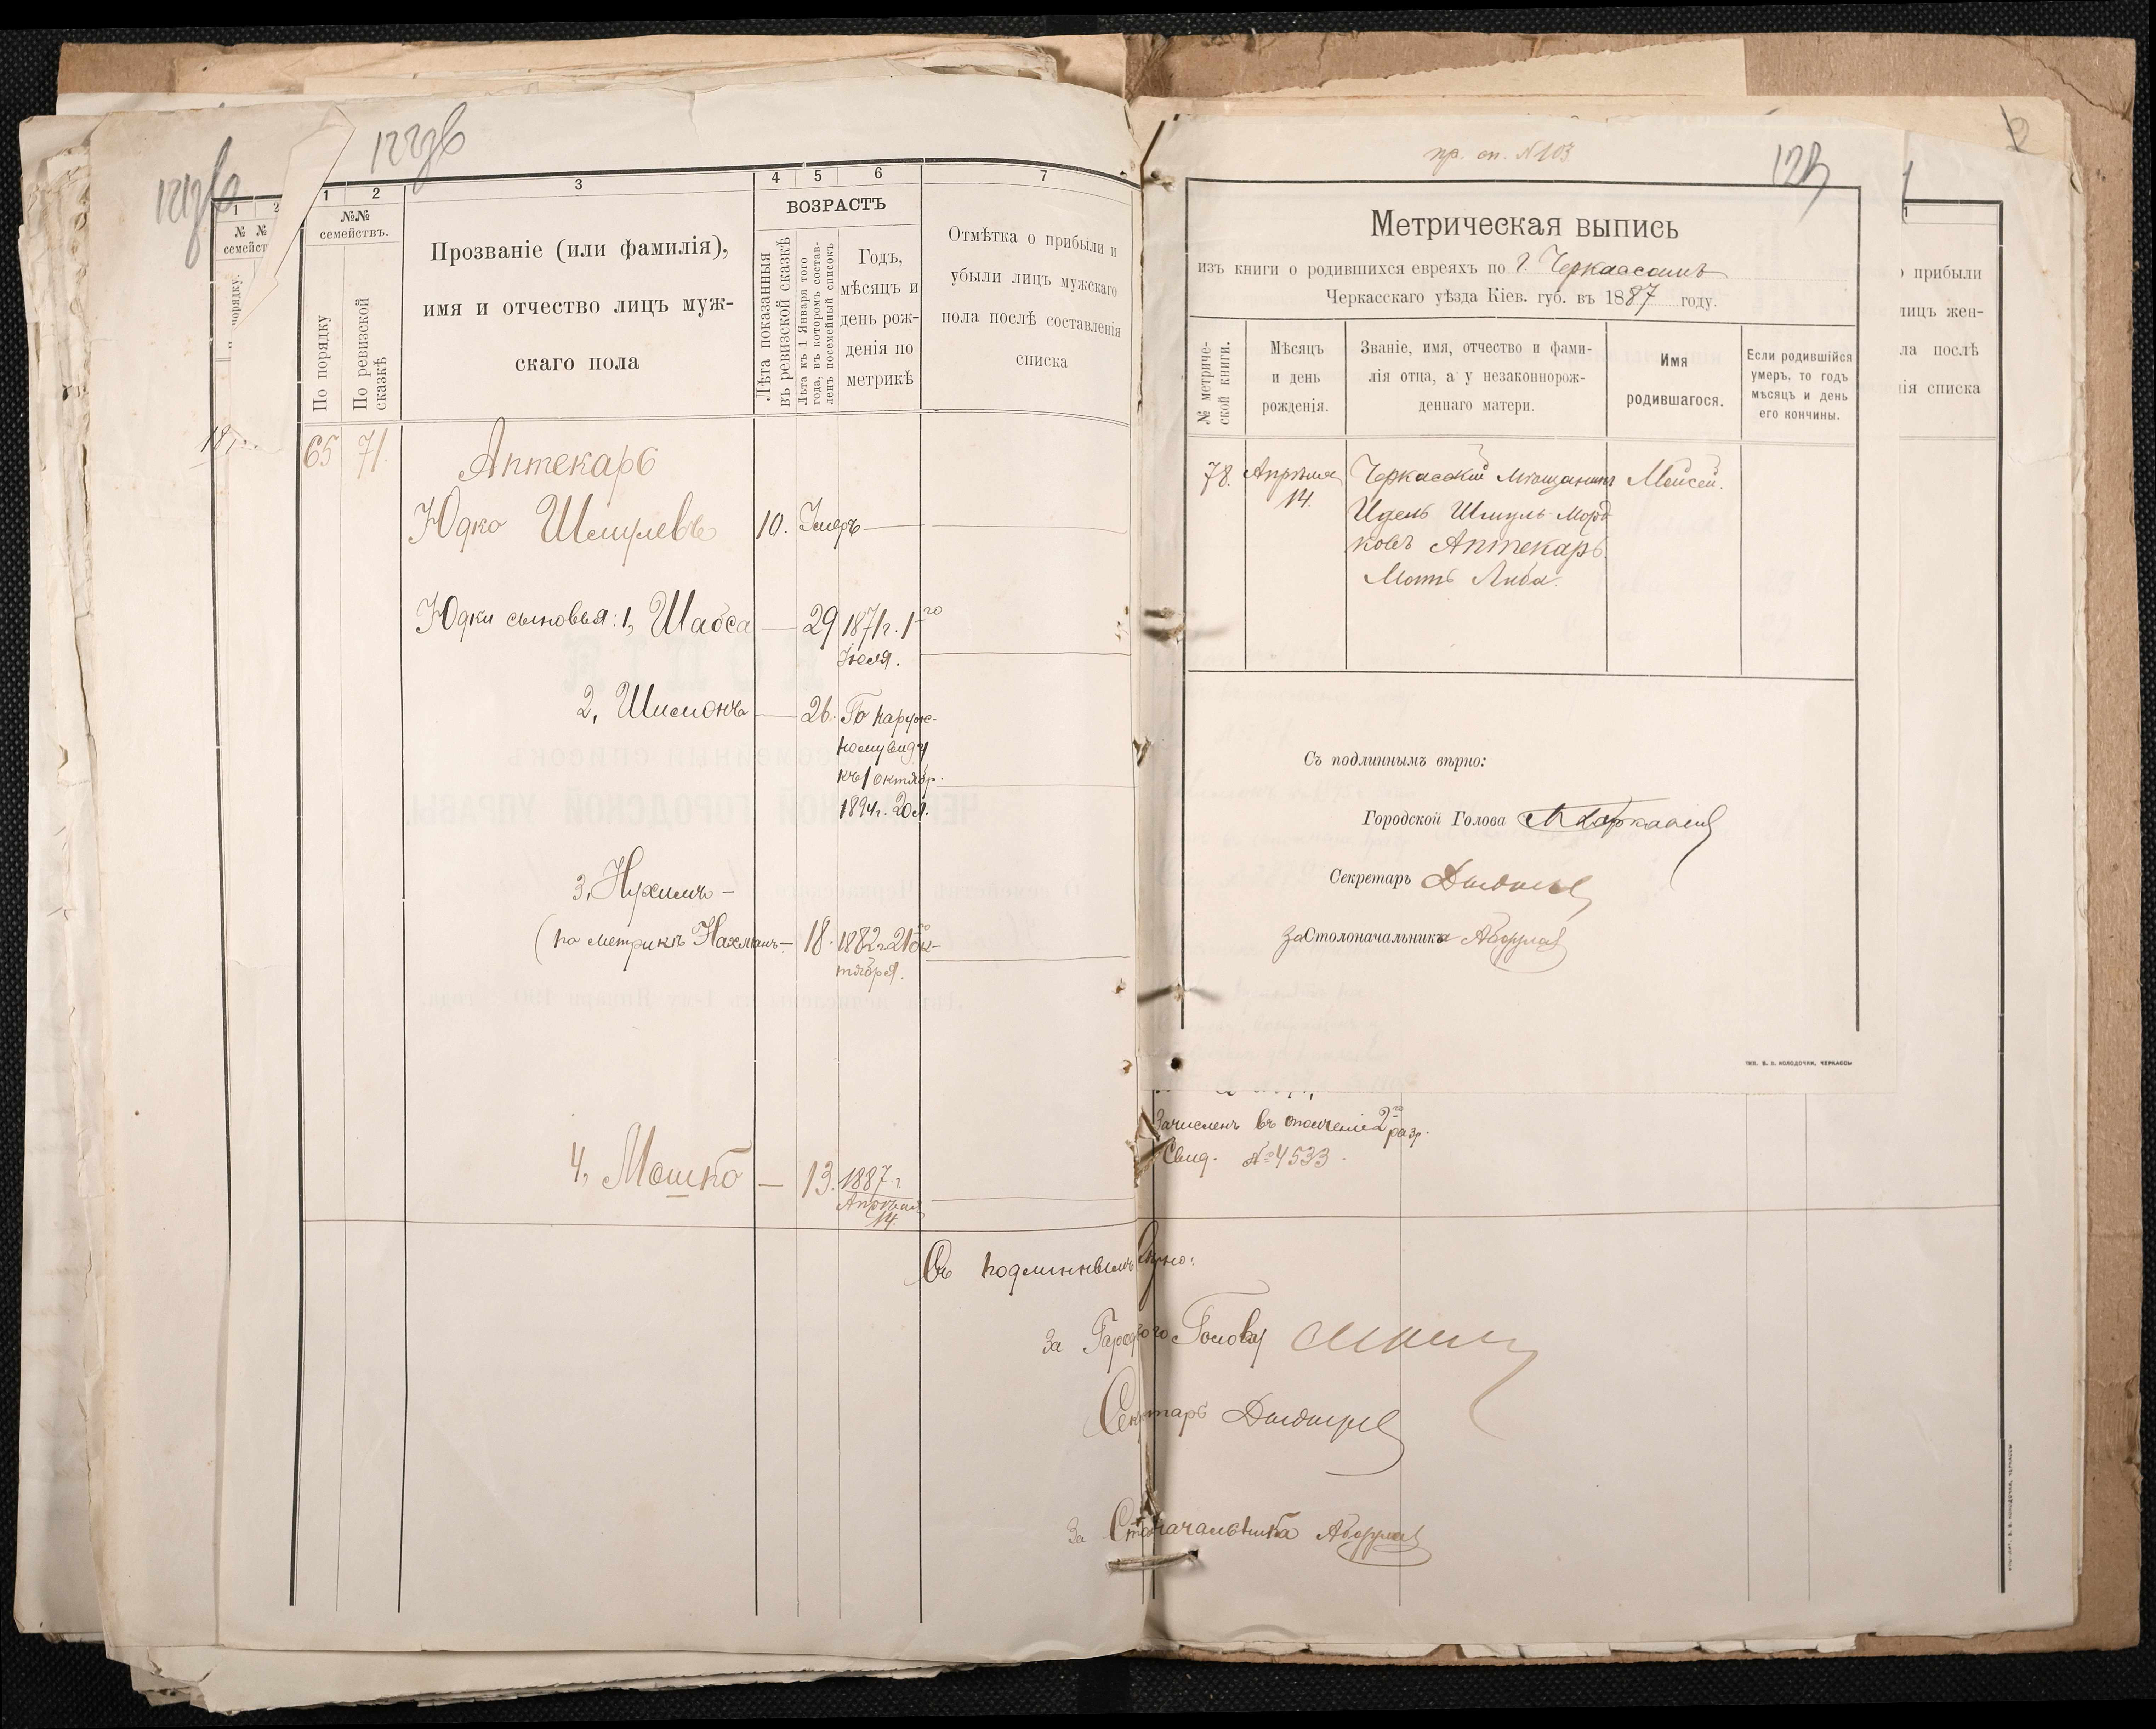 122
1
2
3
4
5
6
7
№№
семействъ.
По порядку
По ревизской
сказкѣ
Прозваніе (или фамилія),
имя и отчество лицъ муж-
скаго пола
ВОЗРАСТЪ
Лѣта показанныя
въ ревизской сказкѣ
Лѣта къ 1 Января того
года, въ которомъ состав-
ленъ посемейный списокъ
Годъ,
мѣсяцъ и
день рож-
денія по
метрикѣ
Отмѣтка о прибыли и
убыли лицъ мужскаго
пола послѣ составленія
списка
1
2
№ №
семейст
порядку.
65
71.
Аптекарь
Юдко Шмулевъ
10.
Умеръ
Юдки сыновья: 1, Шабса
29
1871 г. 1го
Іюля.
2, Шимонъ
26.
По наруж-
ному виду
къ 1 октябр.
1894 г. 20 л.
3, Нухимъ
(по метрикѣ Нахманъ
18.
1882 г. 21 Ок-
тября.
4, Мошко
13.
1887 г.
Апрѣля
14.
Съ подлиннымъ вѣрно:
За Городского Голову
Секретарь
За Столоначальника
пр. сп. № 103
123
Метрическая выпись
изъ книги о родившихся евреяхъ по г. Черкассамъ
Черкасскаго уѣзда Кіев. губ. въ 1887 году.
№ метриче-
ской книги.
Мѣсяцъ
и день
рожденія.
Званіе, имя, отчество и фами-
лія отца, а у незаконнорож-
деннаго матери.
Имя
родившагося.
Если родившійся
умеръ, то годъ
мѣсяцъ и день
его кончины.
78.
Апрѣля
14.
Черкасскій Мѣщанинъ
Идель Шмуль-Морд
ковъ Аптекарь.
Мать Либа.
Моисей.
Съ подлиннымъ вѣрно:
Городской Голова
Секретарь
За Столоначальника
ТИП. В. В. КОЛОДОЧКИ, ЧЕРКАССЫ
Зачисленъ въ ополченіе 2го разр.
Свид. № 4533.
2
прибыли
лицъ жен-
ла послѣ
нія списка